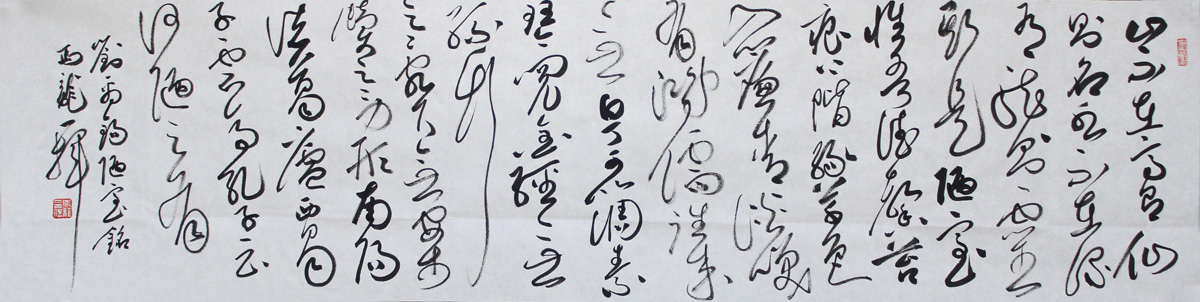 山不在高有仙
則名水不在深
有龍則靈
斯是陋室
惟吾德馨苔
痕上階綠草色
入簾青談笑
有鴻儒往來
無白丁可調素
琴閱金經無
絲竹
之亂耳無案
牘之勞形南陽
諸葛廬西蜀
子云亭孔子云
何陋之有
劉禹錫陋室銘